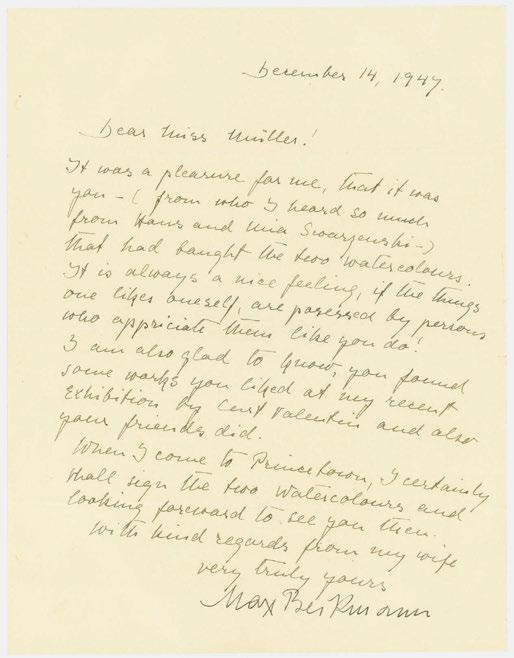 December 14, 1947.
Dear Miss Müller!
It was a pleasure for me, that it was
you – ( from who I heard so much
from Hans and Mia Swarzenski –)
that had baught the two watercolours.
It is always a nice feeling, if the things
one likes oneself, are posessed by persons
who appriciate them like you do!
I am also glad to know, you found
some works you liked at my recent
Exhibition by Curt Valentin and also
your friends did.
When I come to Princetown, I certainly
shall sign the two watercolours and
looking forward to see you then.
With kind regards from my wife
very truly yours
Max Beckmann